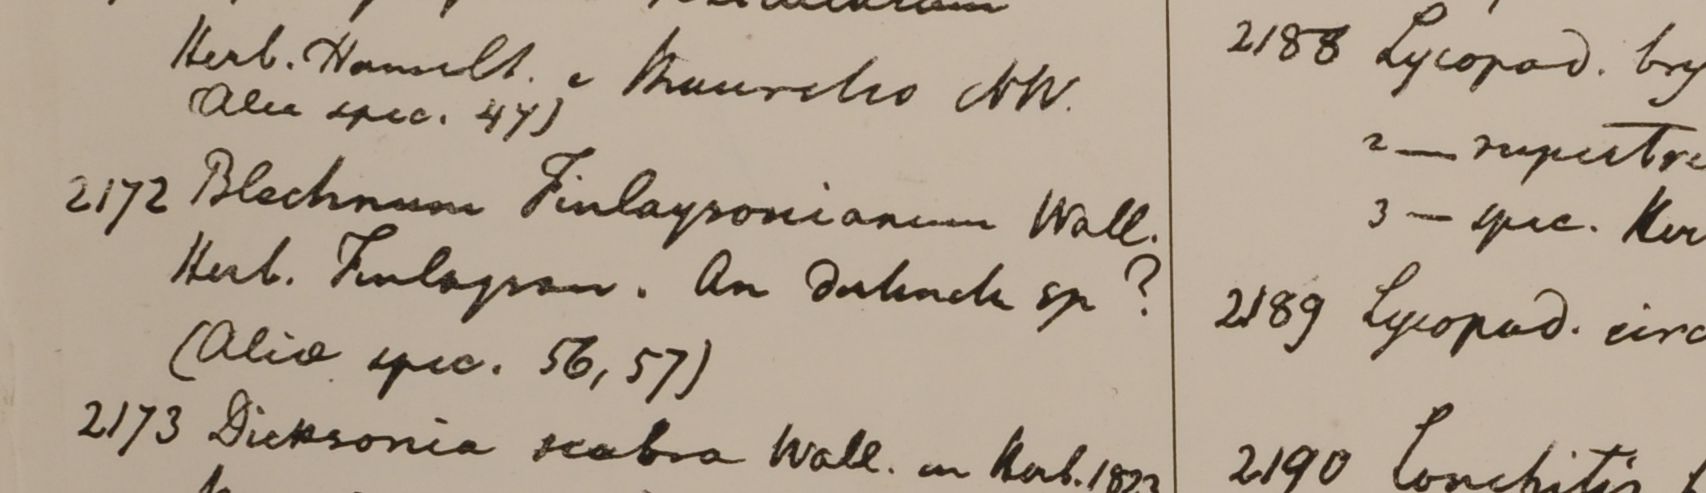 Herb. Hamilt. e NW.
(Alia spec. 47)
2172 Blechnum Finlaysonianum Wall.
Herb. Finlayson. An distincta sp?
(Alia spec. 56, 57)
2173 Dicksonia scabra Wall. in Herb. 1823
2188 Lycopod. bry
2 — rupestre
3 — spec. Her
2189 Lycopod. circ
2190 Lonchitis